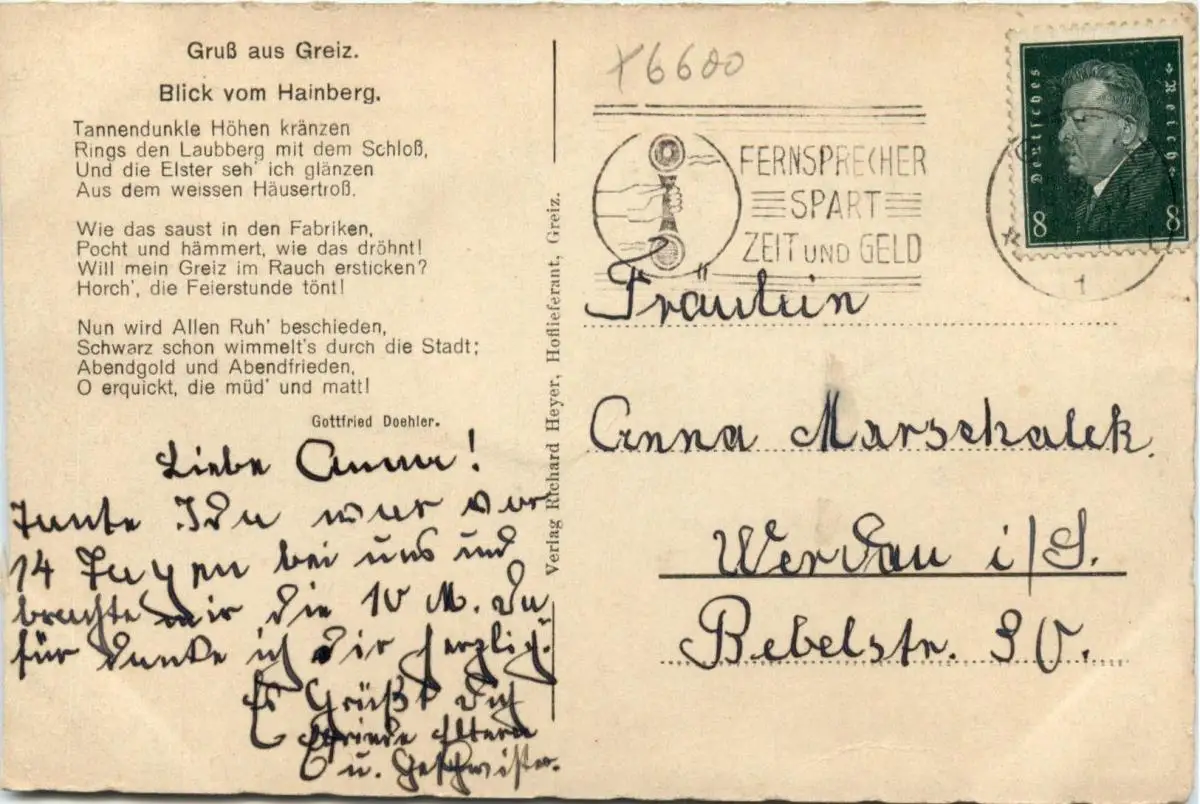 Gruß aus Greiz.
Blick vom Hainberg.
Tannendunkle Höhen kränzen
Rings den Laubberg mit dem Schloß,
Und die Elster seh' ich glänzen
Aus dem weissen Häusertroß.
Wie das saust in den Fabriken,
Pocht und hämmert, wie das dröhnt!
Will mein Greiz im Rauch ersticken?
Horch', die Feierstunde tönt!
Nun wird Allen Ruh' beschieden,
Schwarz schon wimmelt's durch die Stadt;
Abendgold und Abendfrieden,
O erquickt, die müd' und matt!
Gottfried Doehler.
Liebe Anna!
Tante Ida war vor
14 Tagen bei uns und
brachte mir die 10 M. Da
für danke ich Dir herzlich.
Es Grüßt Dich
Eltern
u. Geschwister.
Verlag Richard Heyer, Hoflieferant, Greiz.
6600
FERNSPRECHER
SPART
ZEIT UND GELD
Deutsches Reich
8 8
1
Fräulein
Anna Marschalek.
Werdau i/S.
Bebelstr. 30.